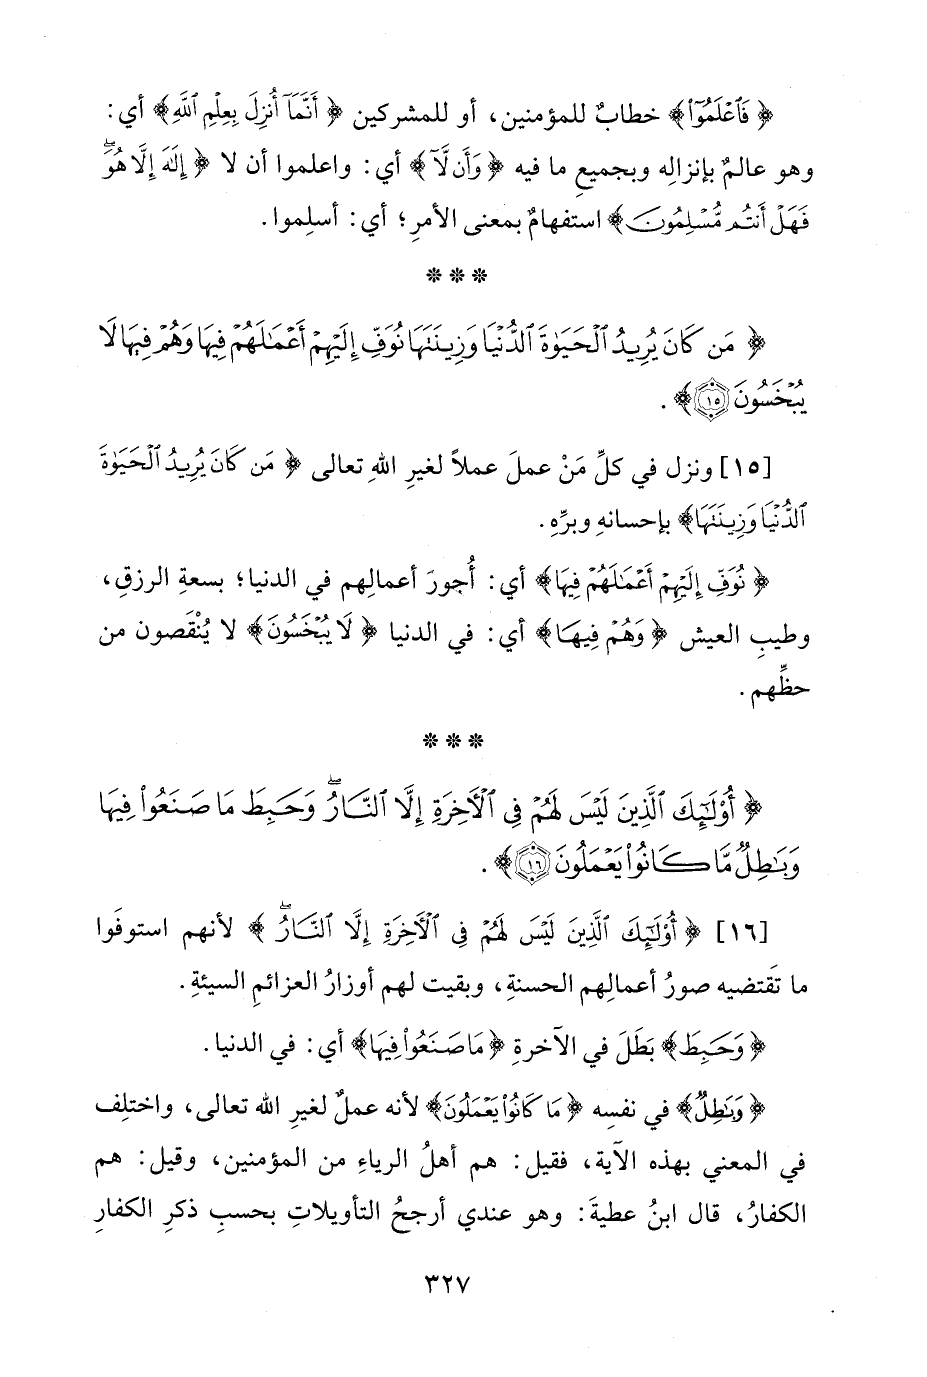 ﴿ فَٱعۡلَمُوٓاْ﴾ خطابٌ للمؤمنين، أو للمشركين ﴿ أَنَّمَآ أُنزِلَ بِعِلۡمِ ٱللَّهِ﴾ أي:
وهو عالمٌ بإنزالِه وبجميعِ ما فيه ﴿ وَأَن لَّآ ﴾ أي: واعلموا أن لا ﴿ إِلَٰهَ إِلَّا هُوَۖ
فَهَلۡ أَنتُم مُّسۡلِمُونَ﴾ استفهامٌ بمعنى الأمرِ؛ أي: أسلِموا.
***
﴿ مَن كَانَ يُرِيدُ ٱلۡحَيَوٰةَ ٱلدُّنۡيَا وَزِينَتَهَا نُوَفِّ إِلَيۡهِمۡ أَعۡمَٰلَهُمۡ فِيهَا وَهُمۡ فِيهَا لَا
يُبۡخَسُونَ ١٥﴾.
[١٥] ونزل في كلِّ مَنْ عملَ عملاً لغيرِ اللهِ تعالى ﴿ مَن كَانَ يُرِيدُ ٱلۡحَيَوٰةَ
ٱلدُّنۡيَا وَزِينَتَهَا﴾ بإحسانهِ وبرِّهِ.
﴿ نُوَفِّ إِلَيۡهِمۡ أَعۡمَٰلَهُمۡ فِيهَا﴾ أي: أُجورَ أعمالِهم في الدنيا؛ بسعةِ الرزقِ،
وطيبِ العيش ﴿ وَهُمۡ فِيهَا﴾ أي: في الدنيا ﴿ لَا يُبۡخَسُونَ﴾ لا يُنْقَصون من
حظِّهم.
***
﴿ أُوْلَٰٓئِكَ ٱلَّذِينَ لَيۡسَ لَهُمۡ فِي ٱلۡأٓخِرَةِ إِلَّا ٱلنَّارُۖ وَحَبِطَ مَا صَنَعُواْ فِيهَا
وَبَٰطِلٞ مَّا كَانُواْ يَعۡمَلُونَ ١٦﴾.
[١٦] ﴿ أُوْلَٰٓئِكَ ٱلَّذِينَ لَيۡسَ لَهُمۡ فِي ٱلۡأٓخِرَةِ إِلَّا ٱلنَّارُۖ ﴾ لأنهم استوفَوا
ما تَقتضيه صورُ أعمالِهم الحسنةِ، وبقيت لهم أوزارُ العزائمِ السيئةِ.
﴿ وَحَبِطَ﴾ بَطَلَ في الآخرةِ ﴿ مَا صَنَعُواْ فِيهَا﴾ أي: في الدنيا.
﴿ وَبَٰطِلٞ﴾ في نفسِه ﴿ مَا كَانُواْ يَعۡمَلُونَ﴾ لأنه عملٌ لغيرِ الله تعالى، واختلِف
في المعني بهذه الآية، فقيل: هم أهلُ الرياءِ من المؤمنين، وقيل: هم
الكفارُ، قال ابنُ عطيةَ: وهو عندي أرجحُ التأويلاتِ بحسبِ ذكرِ الكفارِ
٣٢٧